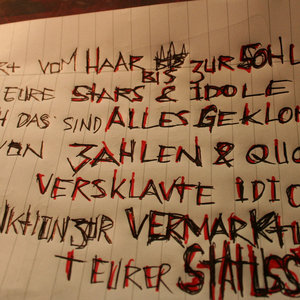 RT VOM HAAR BIS ZUR SOHL
EURE STARS & IDOLE
H DAS SIND ALLES GEKLO
VON ZAHLEN & QUO
VERSKLAVTE IDIO
NKTION ZUR VERMARKTU
+ EURER STATUSS